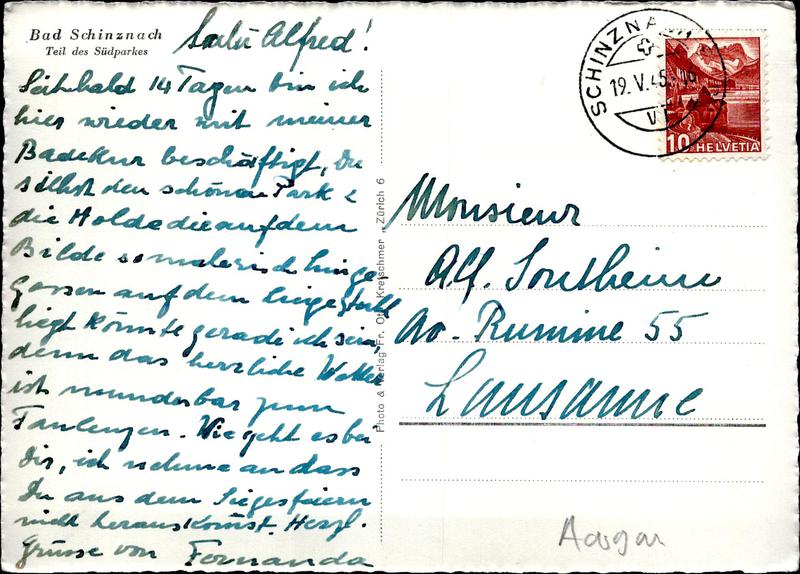 Bad Schinznach
Teil des Südparkes
Salü Alfred!
Seit bald 14 Tagen bin ich
hier wieder mit meiner
Badekur beschäftigt, Du
siehst den schönen Park &
die Holde die auf dem
Bilde so malerisch hinge-
gossen auf dem Liegestuhl
liegt könnte gerade ich sein,
denn das herzliche Wetter
ist wunderbar zum
Faulenzen. Wie geht es bei
Dir, ich nehme an dass
Du aus dem Siegesfeiern
nicht herauskommst. Herzl.
Grüsse von Fernanda
Photo & Verlag Fr. Kretschmer, Zürich 6
SCHINZNACH
19. V. 45
10 HELVETIA
Monsieur
Alf. Sontheim
Av. Rumine 55
Lausanne
Aargau